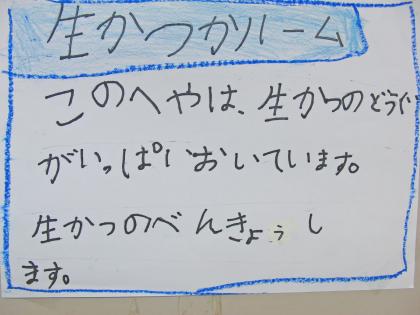 生かつかルーム
このへやは、生かつのどうぐ
がいっぱいおいています。
生かつのべんきょうし
ます。